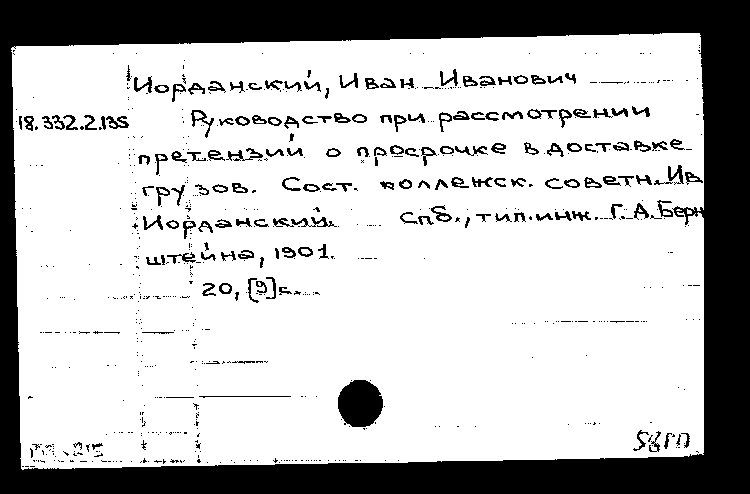 Иорданский, Иван Иванович
18.332.2.135 Руководство при рассмотрении
претензий о просрочке в доставке
грузов. Сост. коллежск. советн. Ив
Иорданский. Спб., тип. инж. Г. А. Берн
штейна, 1901.
20, [9] с.